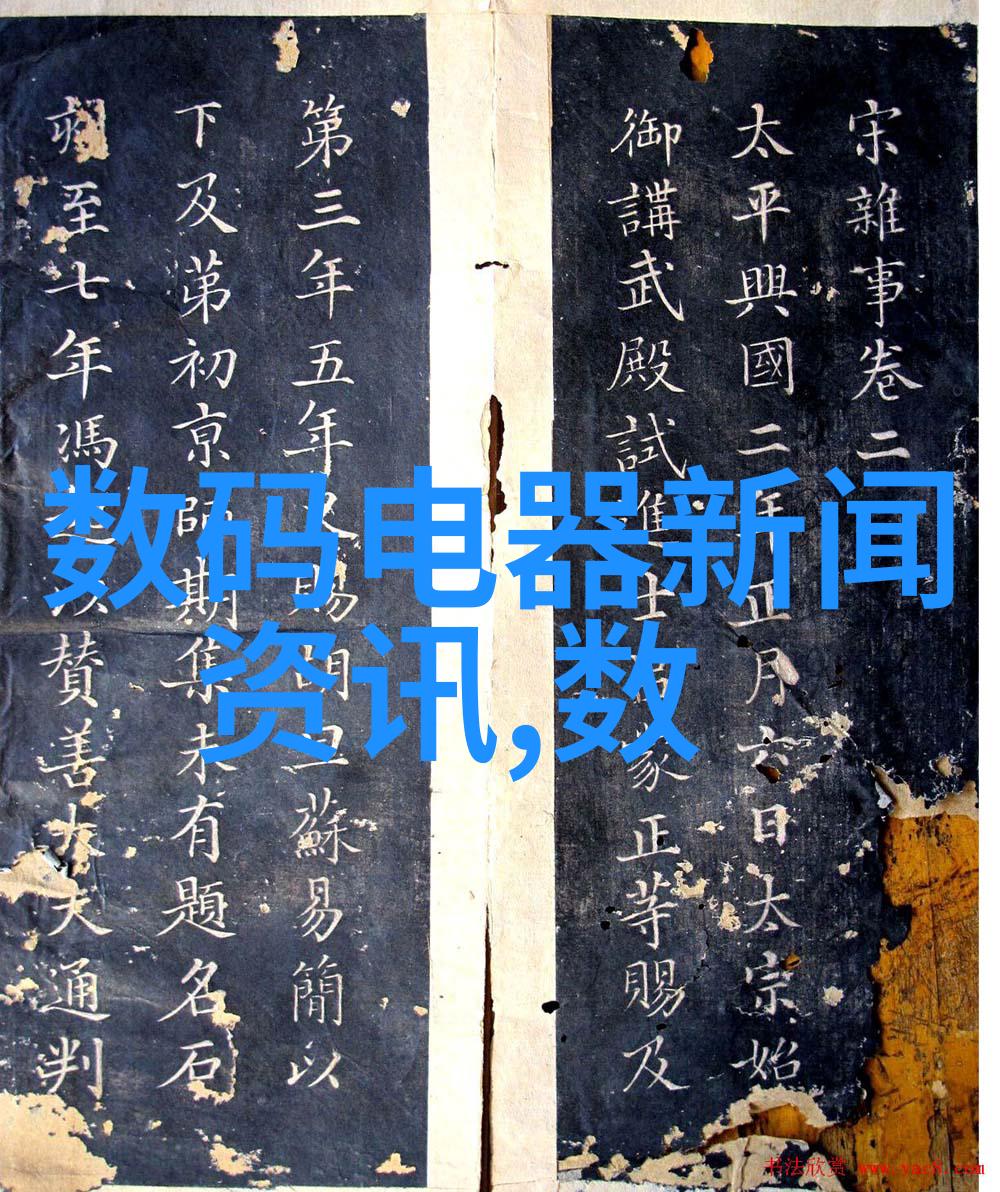 宋雜事卷二
太平興國二年正月六日太宗始
御講武殿試進士
家正等賜及
第三年五年又賜
蘇易簡以
下及第初京師期集未有題名石
刻至七年馮
贊善大夫通判
数码电器新闻
资讯,数
书法欣赏 www.yac8.com